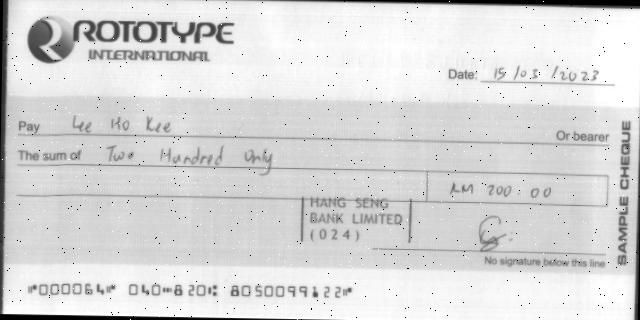 ROTOTYPE
INTERNATIONAL
Date: 15/03/2023
Pay Lee Ho Kee Or bearer
The sum of Two Hundred Only
RM 200.00
HANG SENG
BANK LIMITED
(024)
No signature below this line
SAMPLE CHEQUE
⑈000064⑈ 040⑉820⑆ 8050099122⑈